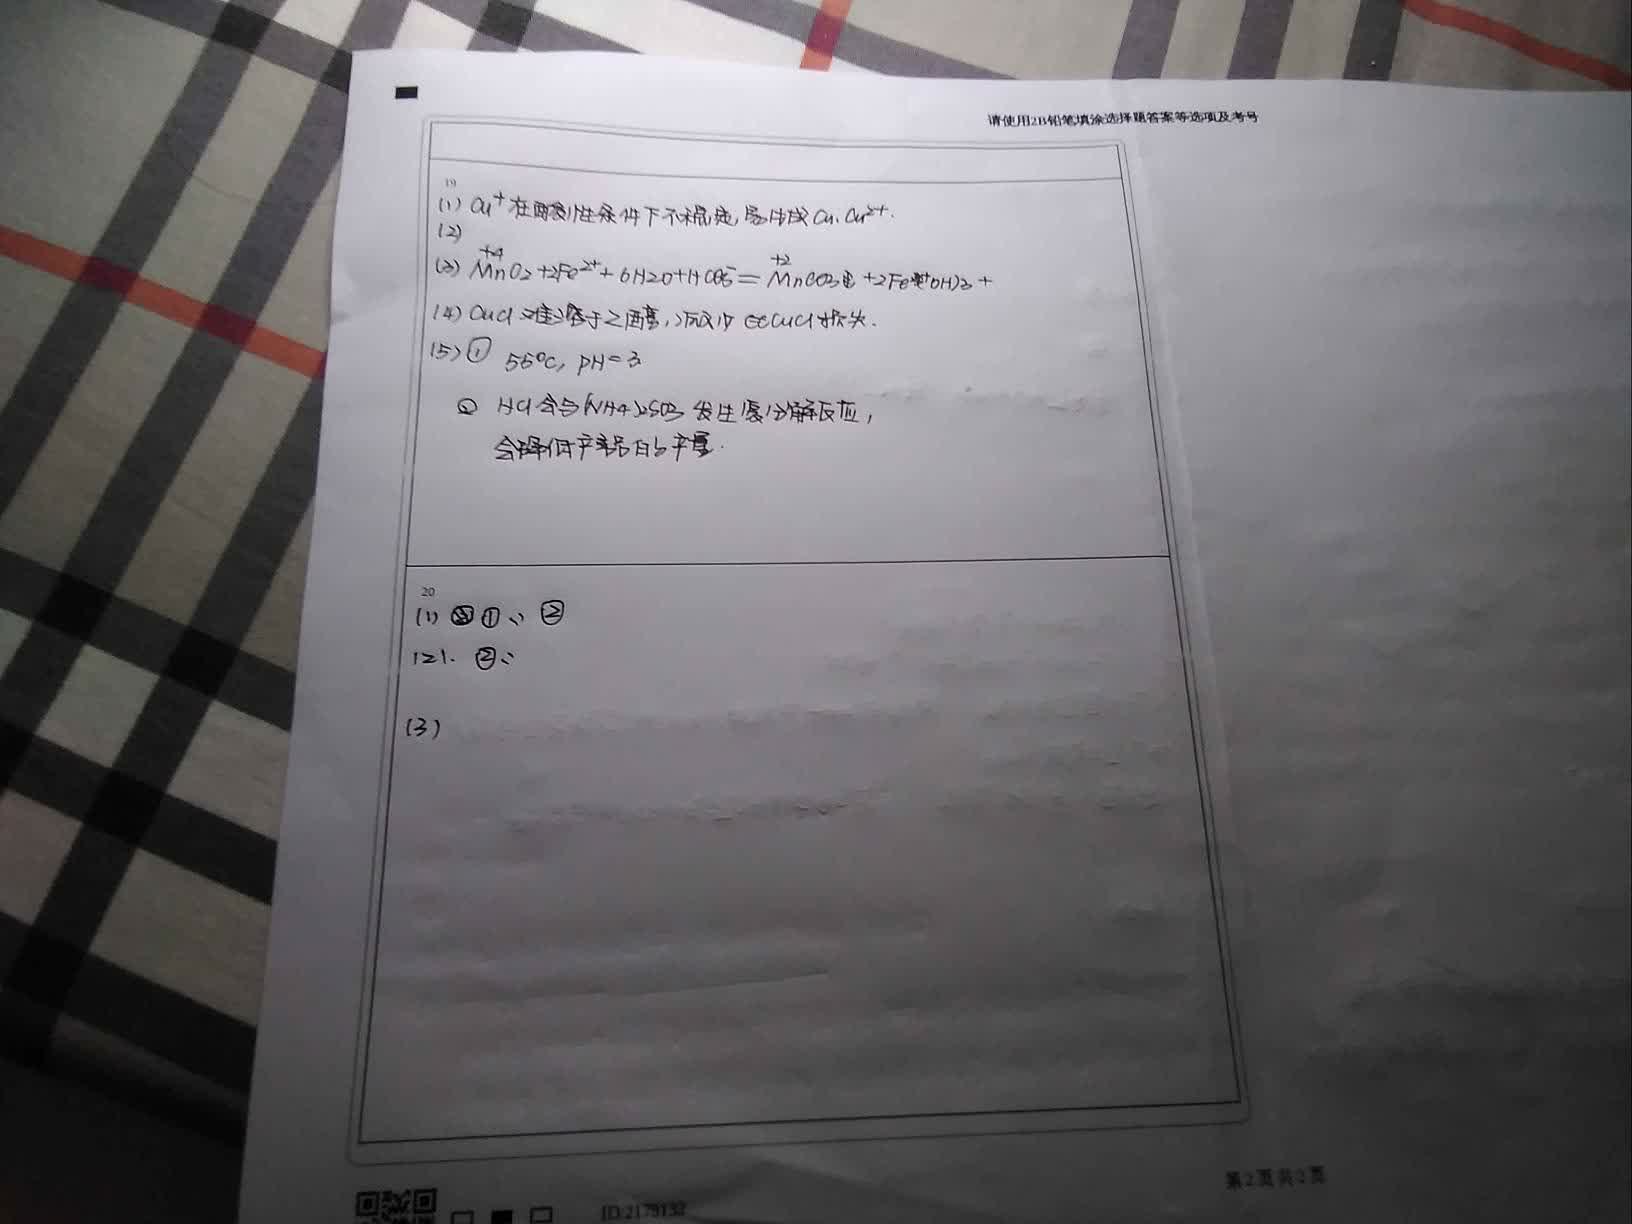 请使用2B铅笔填涂选择题答案等选项及考号
19
(1) Cu⁺在酸性条件下不稳定,易生成Cu、Cu²⁺.
(2)
+4 +2
(3) MnO2+2Fe²⁺+6H2O+HCO3⁻=MnCO3 +2Fe(OH)3+
(4) CuCl难溶于乙醇,减少CuCl损失.
(5) ① 55℃, pH=3
② HCl会与(NH4)2SO3发生复分解反应,
会降低产品的产量.
20
(1) ① ; ②
(2). ② ;
(3)
第2页共2页
ID:2179132